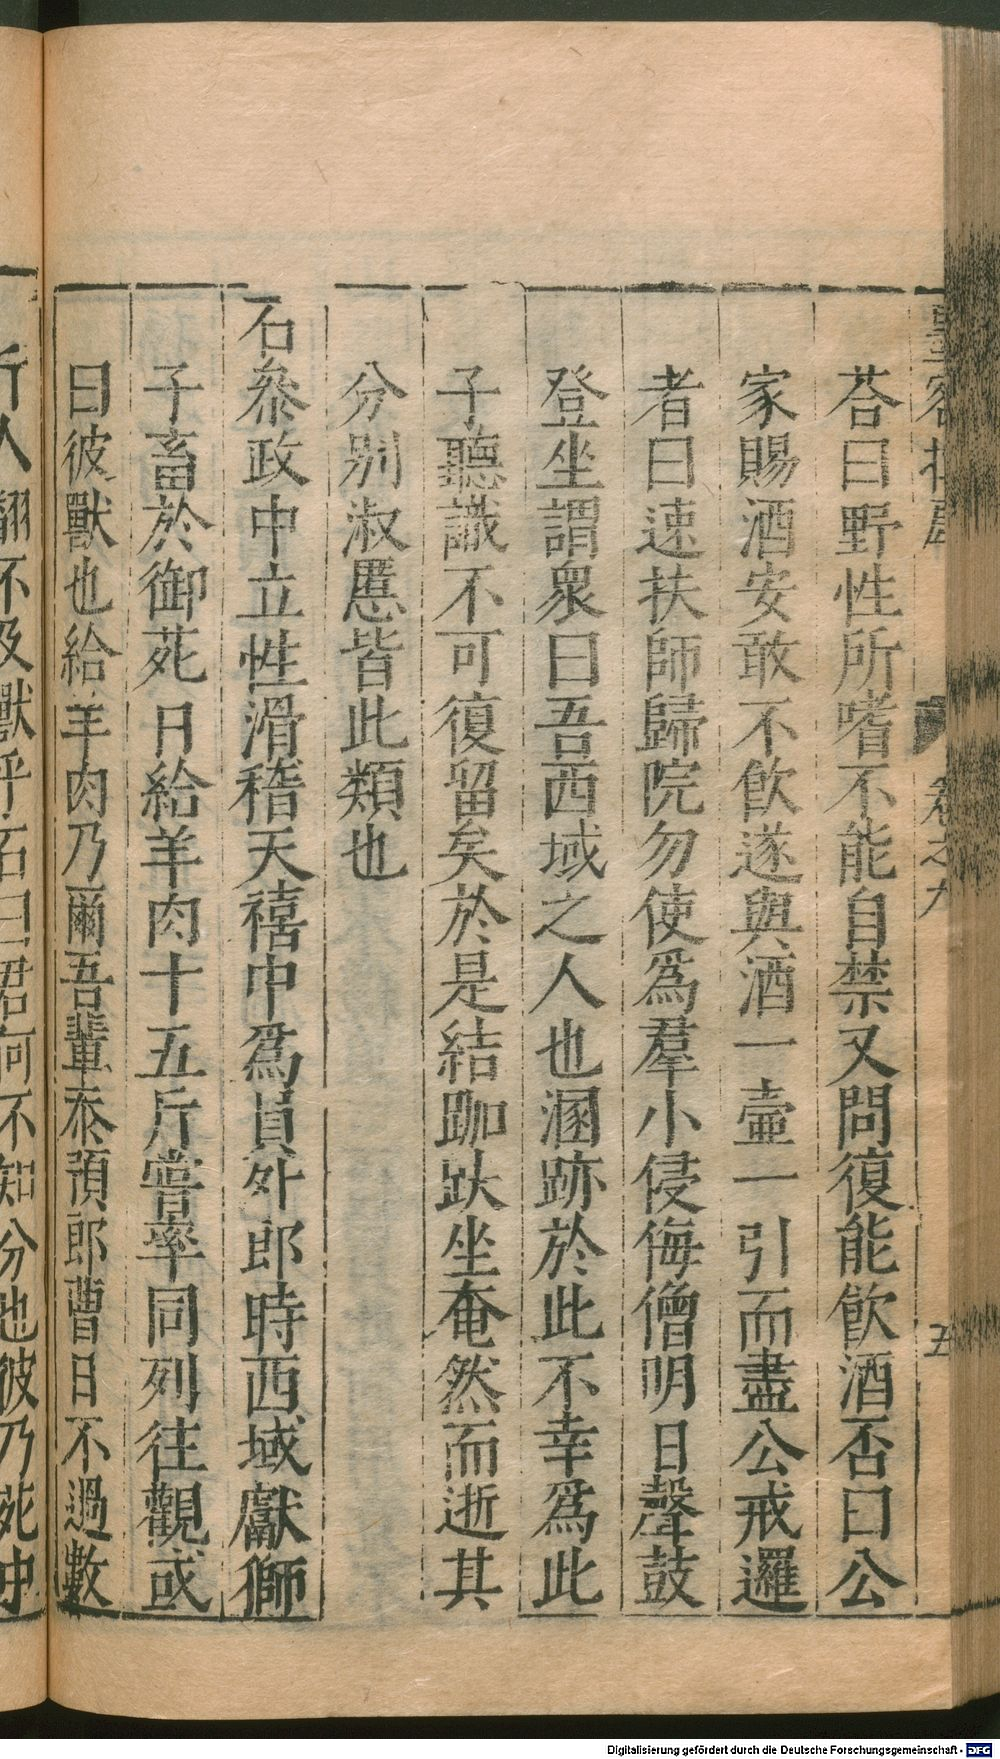 卷之九
五
荅曰野性所嗜不能自禁又問復能飲酒否曰公
家賜酒安敢不飲遂與酒一壷一引而盡公戒邏
者曰速扶師歸院勿使爲羣小侵侮僧明日聲鼓
登坐謂衆曰吾西域之人也溷跡於此不幸爲此
子聽識不可復留矣於是結跏趺坐奄然而逝其
分别淑慝皆此類也
石叅政中立性滑稽天禧中爲貟外郎時西域獻獅
子畜於御苑日給羊肉十五斤嘗率同列往觀或
曰彼獸也給羊肉乃爾吾輩忝預郎曹日不過數
斤人翻不及獸乎石曰君何不知分也彼乃苑中
Digitalisierung gefördert durch die Deutsche Forschungsgemeinschaft - DFG